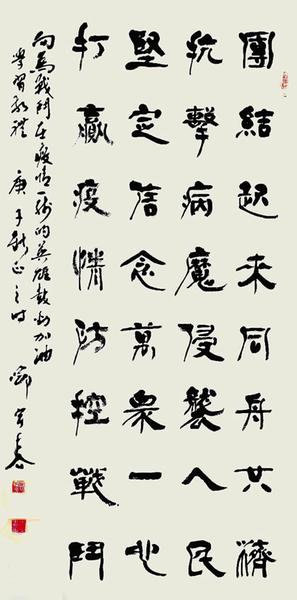 團結起来同舟共濟
抗擊病魔侵襲人民
堅定信念萬衆一心
打贏疫情防控戰鬥
向為戰鬥在疫情一線的英雄鼓勁加油
學習 禮 庚子新正之時